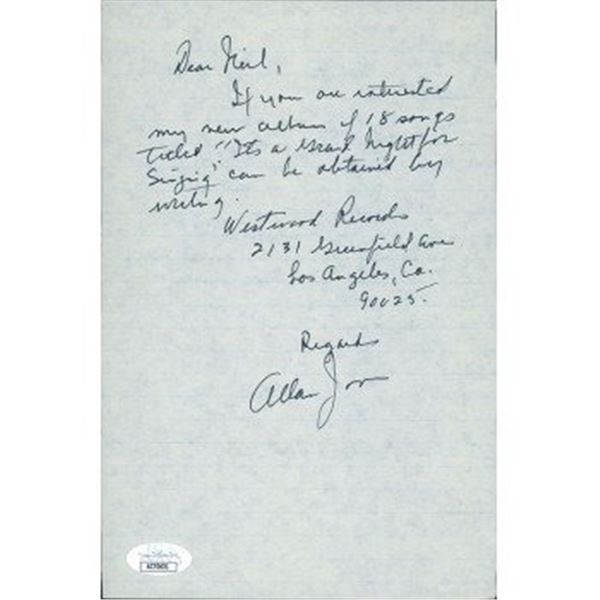 Dear Neil,
If you are interested
my new album of 18 songs
titled "Its a Grand Night for
Singing" can be obtained by
writing.
Westwood Records
2131 Greenfield Ave
Los Angeles, Ca.
90025.
Regards
Allan Jones